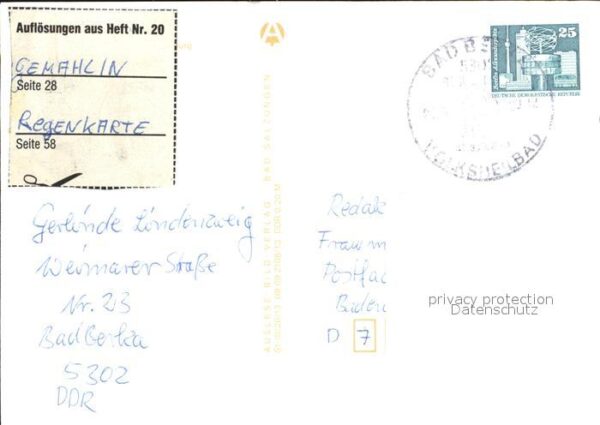 Auflösungen aus Heft Nr. 20
GEMAHLIN
Seite 28
REGENKARTE
Seite 58
25
DEUTSCHE DEMOKRATISCHE REPUBLIK
BAD
VOLKSHEILBAD
Gerlinde Lindenzweig
Weimarer Straße
Nr. 23
Bad Berka
5302
DDR
AUSLESE-BILD-VERLAG BAD SALZUNGEN
Redak
Frau
Postfac
Baden
D 7
privacy protection
Datenschutz